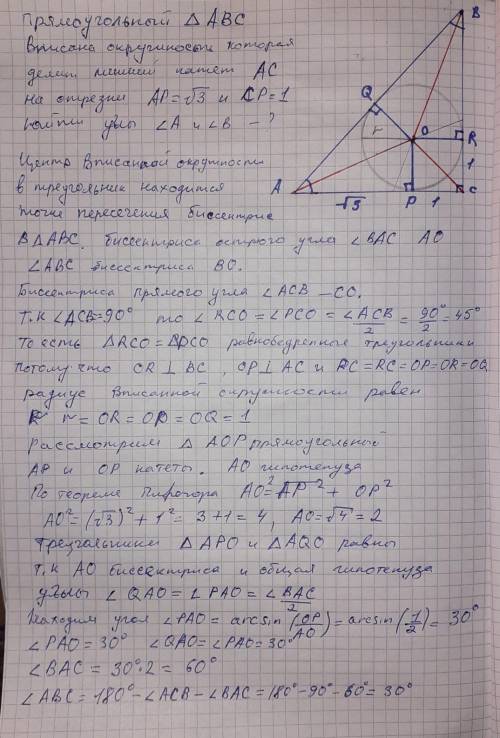 Прямоугольный △ ABC
Вписана окружность которая
делит катет AC
на отрезки AP=√3 и CP=1
Найти углы ∠A и ∠B — ?
Центр вписанной окружности
в треугольник находится
точке пересечения биссектрис
В △ABC. биссектриса острого угла ∠BAC AO
∠ABC биссектриса BO.
Биссектриса прямого угла ∠ACB – CO.
Т.к ∠ACB=90° то ∠RCO=∠PCO = ∠ACB/2 = 90°/2 = 45°
То есть △RCO=△PCO равнобедренные треугольники
потому что CR ⊥ BC, CP ⊥ AC и PC=RC=OP=OR=OQ
радиус вписанной окружности равен
r = OR = OP = OQ = 1
Рассмотрим △ AOP прямоугольный
AP и OP катеты. AO гипотенуза
По теореме Пифагора AO²=AP² + OP²
AO² = (√3)² + 1² = 3+1 = 4, AO=√4 = 2
Треугольники △APO и △AQO равны
т.к AO биссектриса и общая гипотенуза
углы ∠QAO = ∠PAO = ∠BAC/2
Находим угол ∠PAO = arcsin(OP/AO) = arcsin(1/2) = 30°
∠PAO = 30° ∠QAO = ∠PAO = 30°
∠BAC = 30°·2 = 60°
∠ABC = 180° – ∠ACB – ∠BAC = 180° – 90° – 60° = 30°
B
Q
r
O
R
1
A
√3
P
1
C